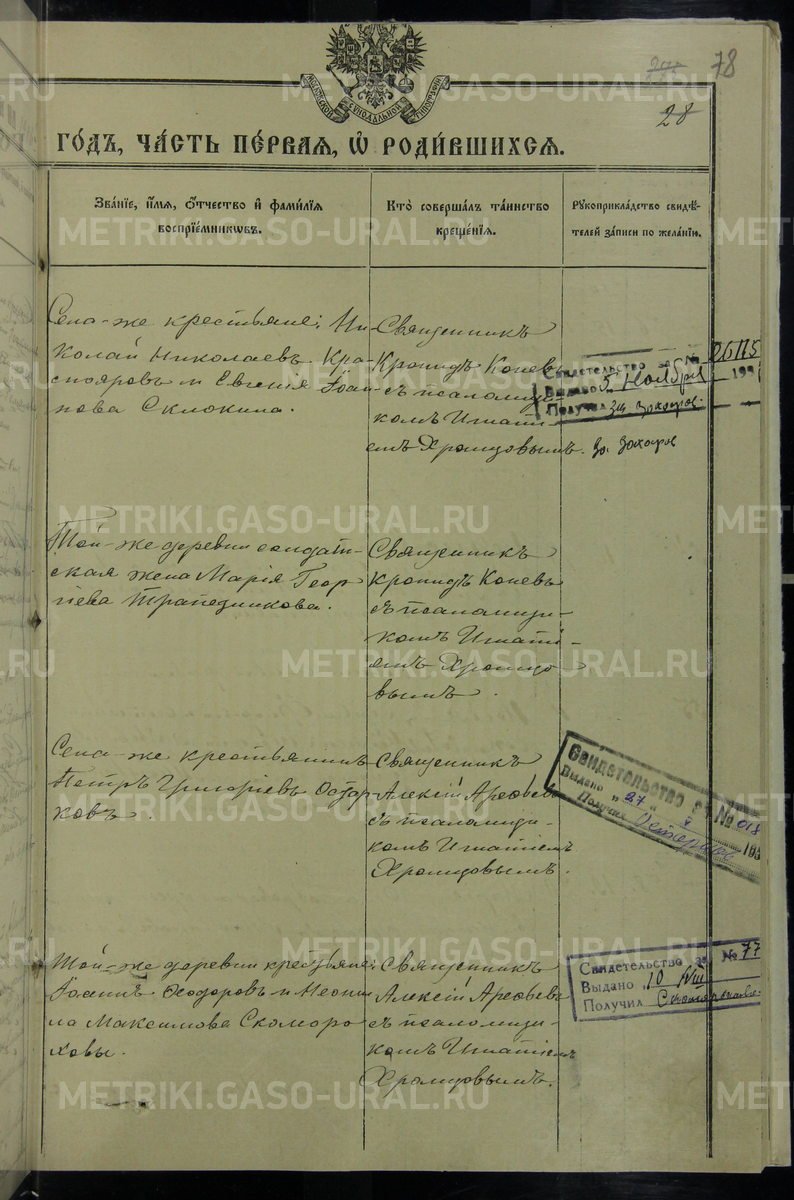 78
28
МОСКОВСКОЙ СѴНОДАЛЬНОЙ ТИПОГРАФІИ
ГО́ДЪ, ЧА́СТЬ ПЕ́РВАЯ, Ѡ҆ РОДИ́ВШИХСЯ.
Зва́нїе, и҆́мѧ, ѻ҆́тчество и҆ фами́лїѧ
воспрїе́мникѡвъ.
Кто̀ соверша́лъ та́инство
креще́нїѧ.
Рꙋкоприкла́дство свидѣ́-
телей за́писи по жела́нїю.
Села-же крестьяне: Ни-
колай Николаевъ Кра-
снояровъ и Евгенія Іоан-
нова Склюкина.
Священникъ
Кронидъ Коневъ
съ псаломщи-
комъ Игнаті-
емъ Хромцовымъ.
Свидетельство за №
Выдано 5 Ноября 193
Получил
Той-же деревни солдат-
ская жена Марія Геор-
гіева Трапезникова.
Священникъ
Кронидъ Коневъ
съ псаломщи-
комъ Игнаті-
емъ Хромцо-
вымъ.
Села-же крестьянинъ
Петръ Григоріевъ
Священникъ
Алексій Арефьевъ
съ псаломщи-
комъ Игнатіемъ
Хромцовымъ.
Свидетельство за № 018
Выдано "27" V 193
Получил
Той-же деревни крестьяне:
Іоаннъ Ѳеодоровъ и Неони-
ла Максимова Скоморо-
ховы.
Священникъ
Алексій Арефьевъ
съ псаломщи-
комъ Игнатіемъ
Хромцовымъ.
Свидетельство за № 77
Выдано 10 VIII
Получил
METRIKI.GASO-URAL.RU